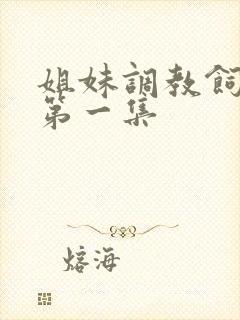 姐妹調教飼
第一集
熔海